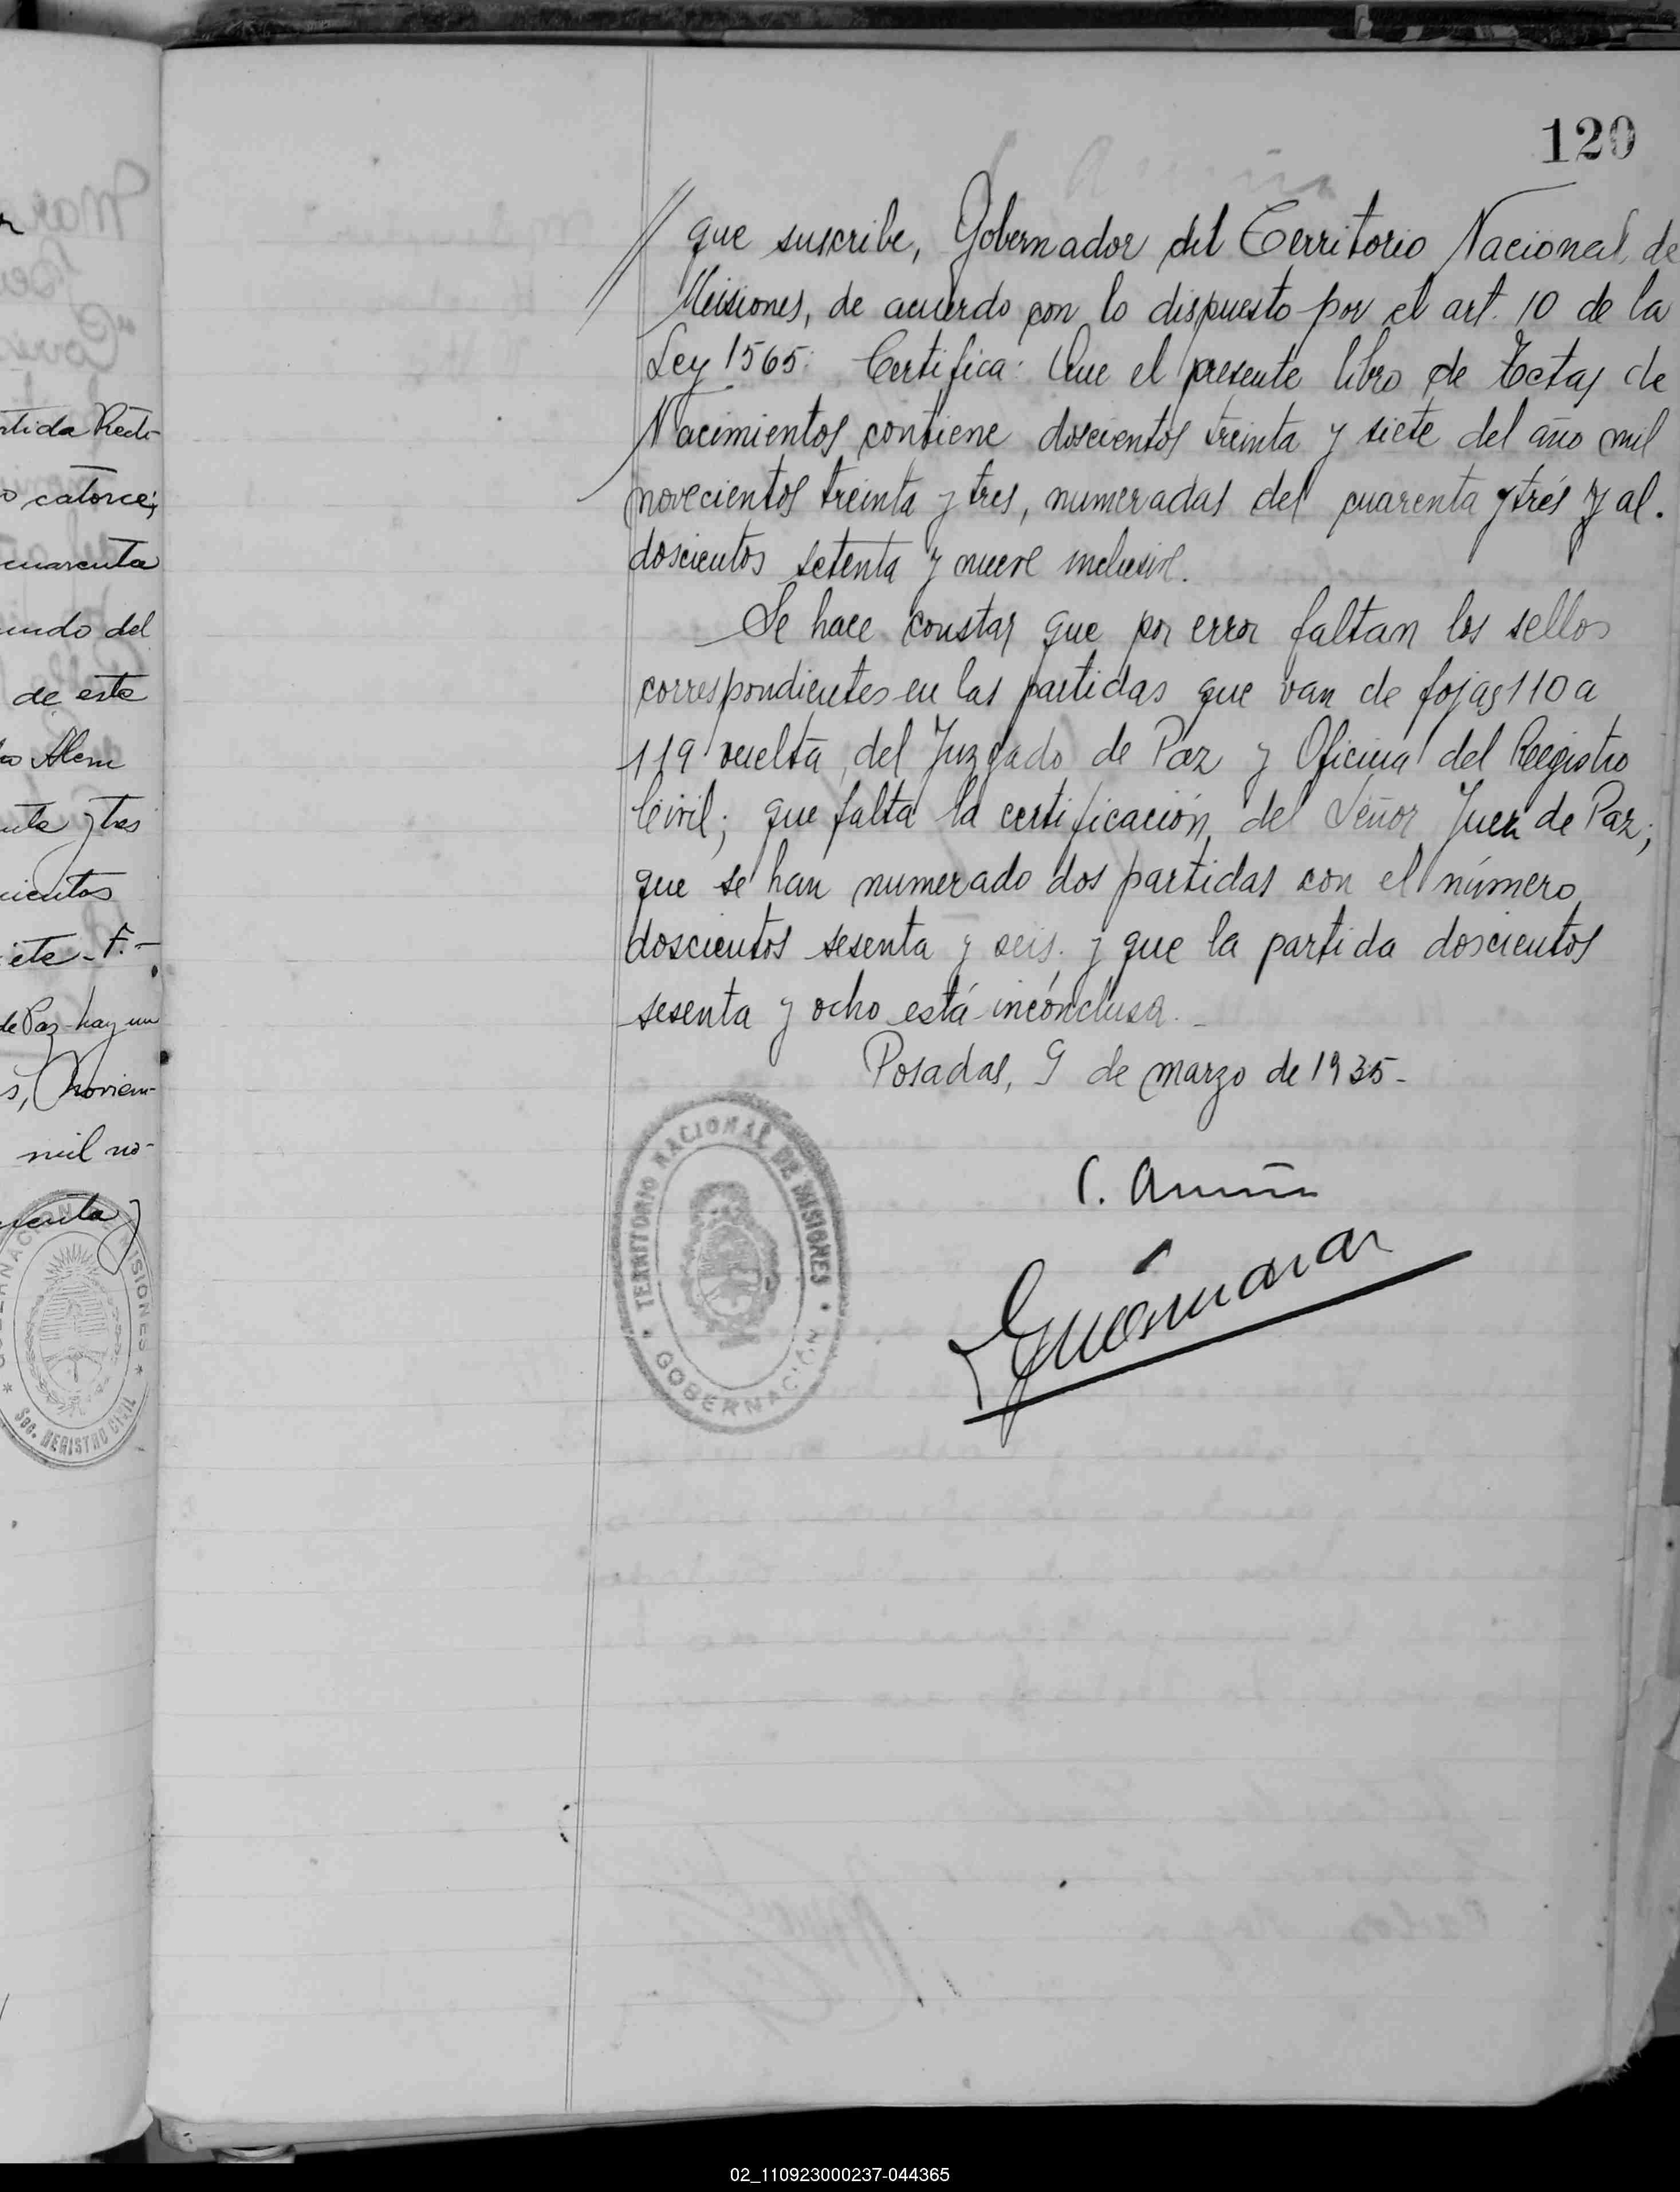 120
// que suscribe, Gobernador del Territorio Nacional, de
Misiones, de acuerdo con lo dispuesto por el art. 10 de la
Ley 1565: Certifica: Que el presente libro de Actas de
Nacimientos contiene doscientos treinta y siete del año mil
novecientos treinta y tres, numeradas del cuarenta y trés y al.
doscientos setenta y nueve inclusive.
Se hace constar que por error faltan los sellos
correspondientes en las partidas que van de fojas 110 a
119 vuelta, del Juzgado de Paz y Oficina del Registro
Civil; que falta la certificación, del Señor Juez de Paz;
que se han numerado dos partidas con el número
doscientos sesenta y seis. y que la partida doscientos
sesenta y ocho está incónclusa.
Posadas, 9 de marzo de 1935-
C.
TERRITORIO NACIONAL DE MISIONES
GOBERNACIÓN
rtida Recti-
o catorce;
cuarenta
undo del
de este
Alem
nta y tres
cientos
ete - F.-
de Paz - hay un
s, Noviem-
mil no-
uenta y
GOBERNACION DE MISIONES
Sec. REGISTRO CIVIL
02_110923000237-044365